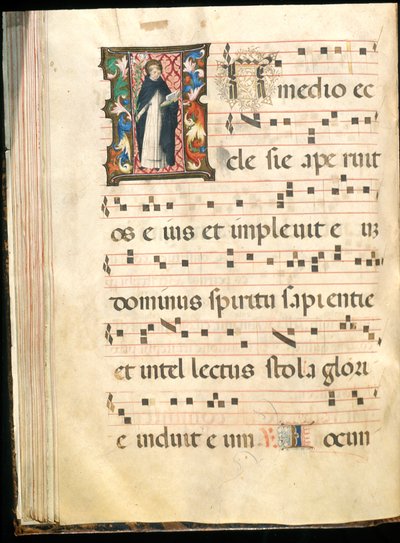 IN medio ec
cle sie ape ruit
os e ius et impleuit e um
dominus spiritu sapientie
et intel lectus stola glori
e induit e um ℣ Iocun